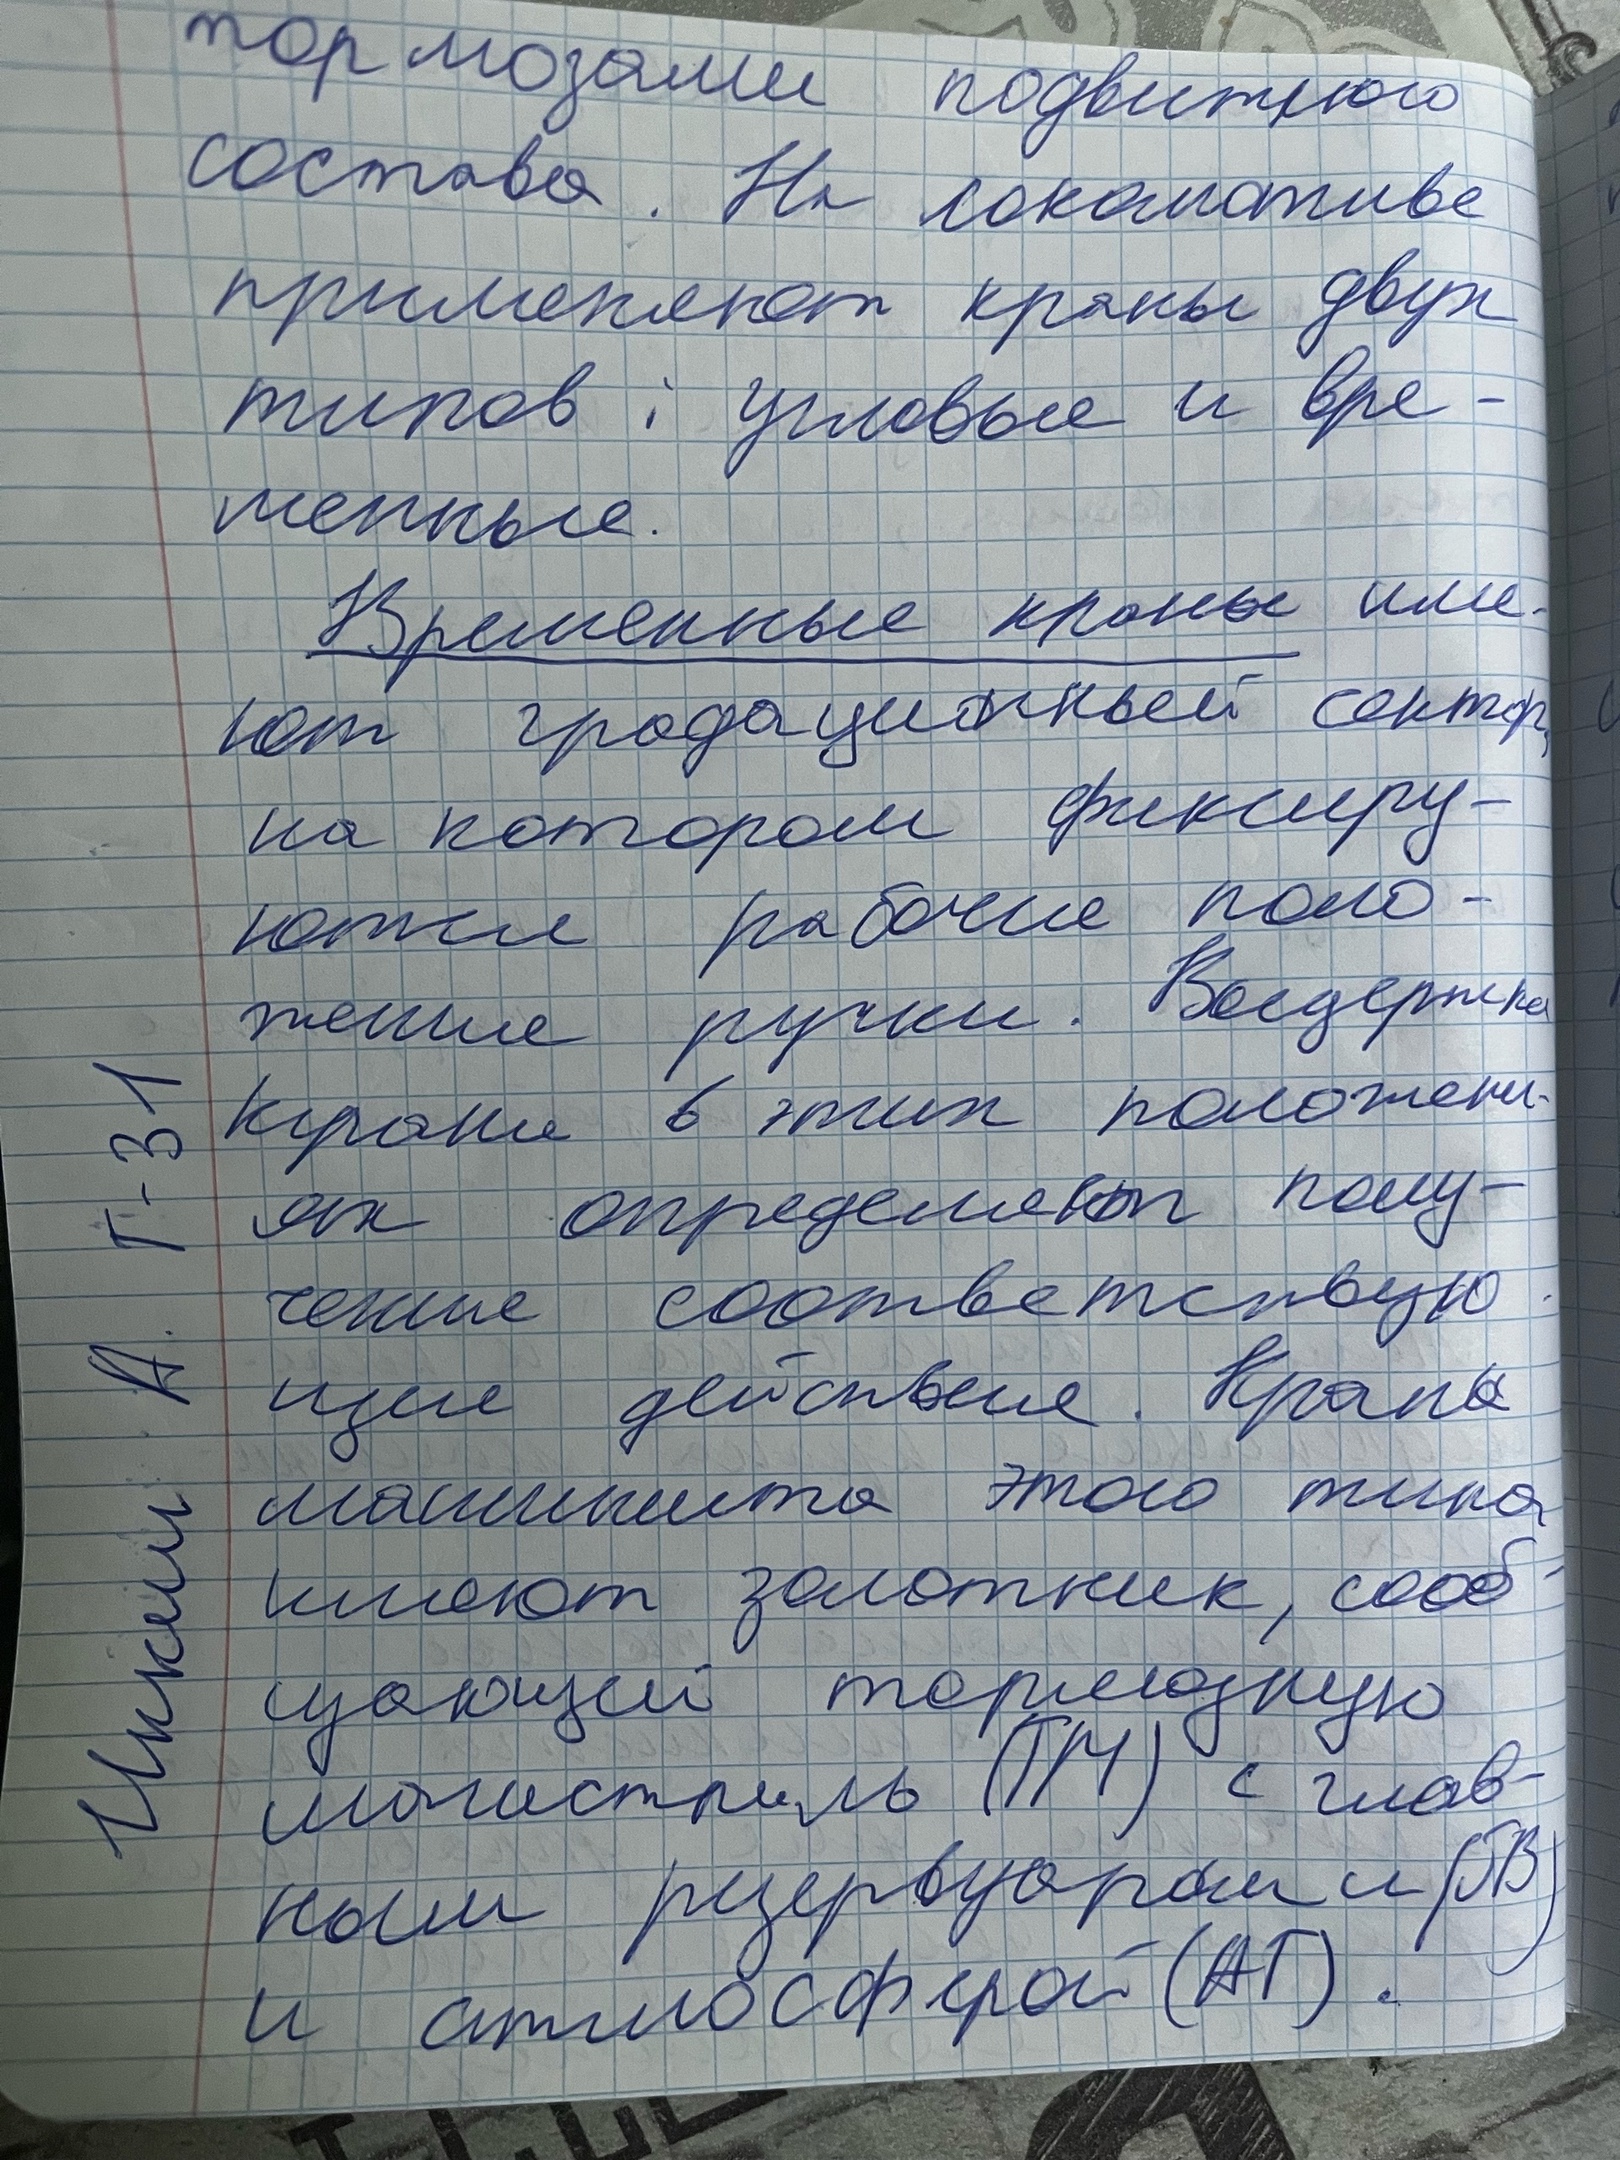 тормозами подвижного
состава. На локомотиве
применяют краны двух
типов: угловые и вре-
менные.
Временные краны име-
ют градационный сектор,
на котором фиксиру-
ются рабочие поло-
жение ручки. Выдержка
крана в этих положени-
ях определяют полу-
чение соответствую-
щие действие. Крана
машиниста этого типа
имеют золотник, сооб-
щающий тормозную
магистраль (ТМ) с глав-
ным резервуаром и (ГВ)
и атмосферой (АТ).
А. Т-31